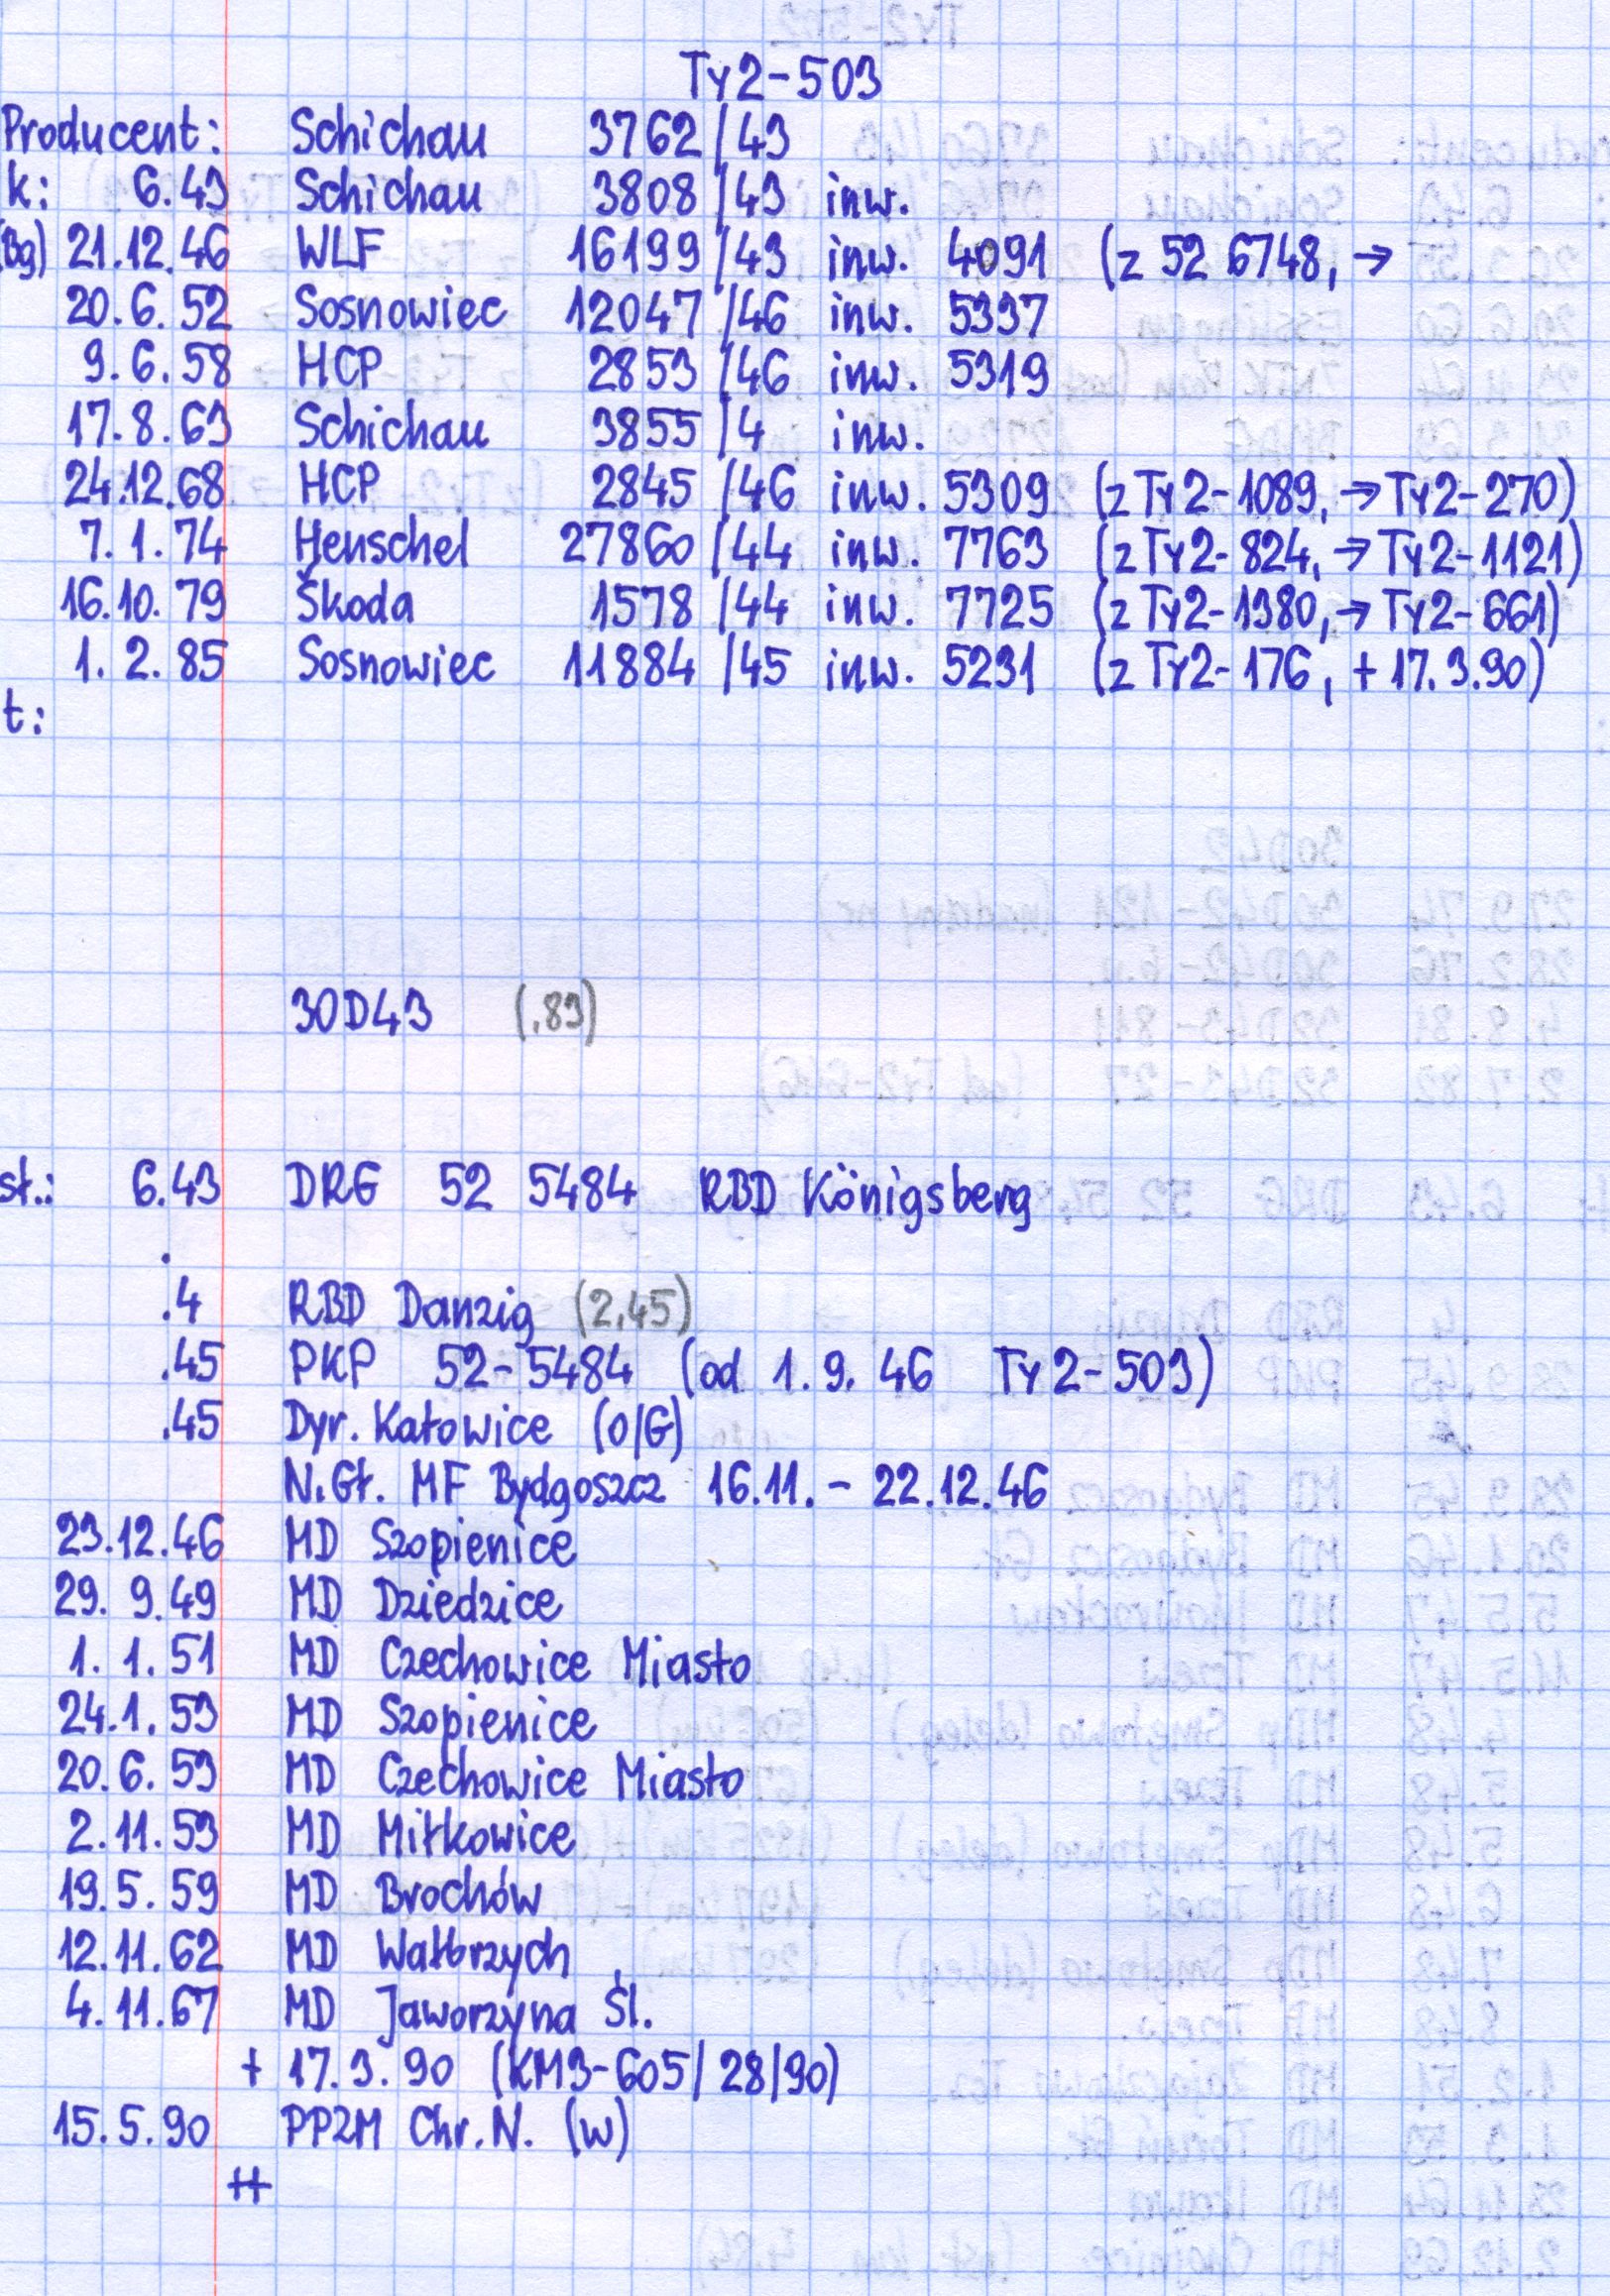 Ty2-503
Producent: Schichau 3762/43
k: 6.43 Schichau 3808/43 inw.
(Bg) 21.12.46 WLF 16199/43 inw. 4091 (z 52 6748, →
20.6.52 Sosnowiec 12047/46 inw. 5337
9.6.58 HCP 2853/46 inw. 5319
17.8.63 Schichau 3855/4 inw.
24.12.68 HCP 2845/46 inw. 5309 (z Ty2-1089, → Ty2-270)
7.1.74 Henschel 27860/44 inw. 7763 (z Ty2-824, → Ty2-1121)
16.10.79 Škoda 1578/44 inw. 7725 (z Ty2-1380, → Ty2-661)
1.2.85 Sosnowiec 11884/45 inw. 5231 (z Ty2-176, + 17.3.90)
t:
30D43 (.83)
st.: 6.43 DRG 52 5484 RBD Königsberg
.
.4 RBD Danzig (2.45)
.45 PKP 52-5484 (od 1.9.46 Ty2-503)
.45 Dyr. Katowice (O/G)
N.Gł. MF Bydgoszcz 16.11. - 22.12.46
23.12.46 MD Szopienice
29.9.49 MD Dziedzice
1.1.51 MD Czechowice Miasto
24.1.53 MD Szopienice
20.6.53 MD Czechowice Miasto
2.11.53 MD Miłkowice
19.5.59 MD Brochów
12.11.62 MD Wałbrzych
4.11.67 MD Jaworzyna Śl.
+ 17.3.90 (KM3-605/28/90)
15.5.90 PPZM Chr.N. (w)
++